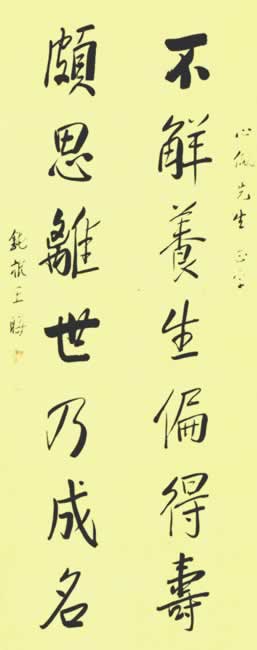 心佩先生正字
不解養生偏得壽
頗思離世乃成名
王